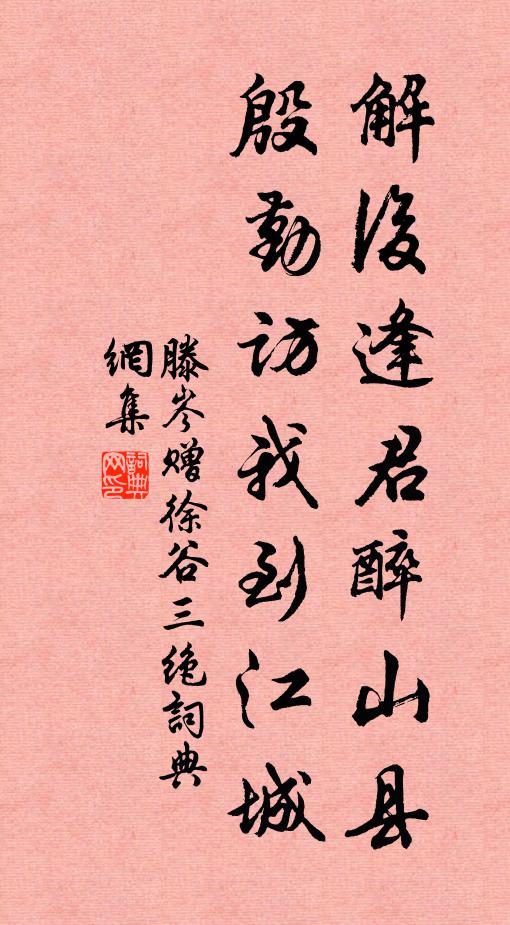 解后逢君醉山县
殷勤访我到江城
滕岑赠徐谷三绝詞典
網集
詞典
网印